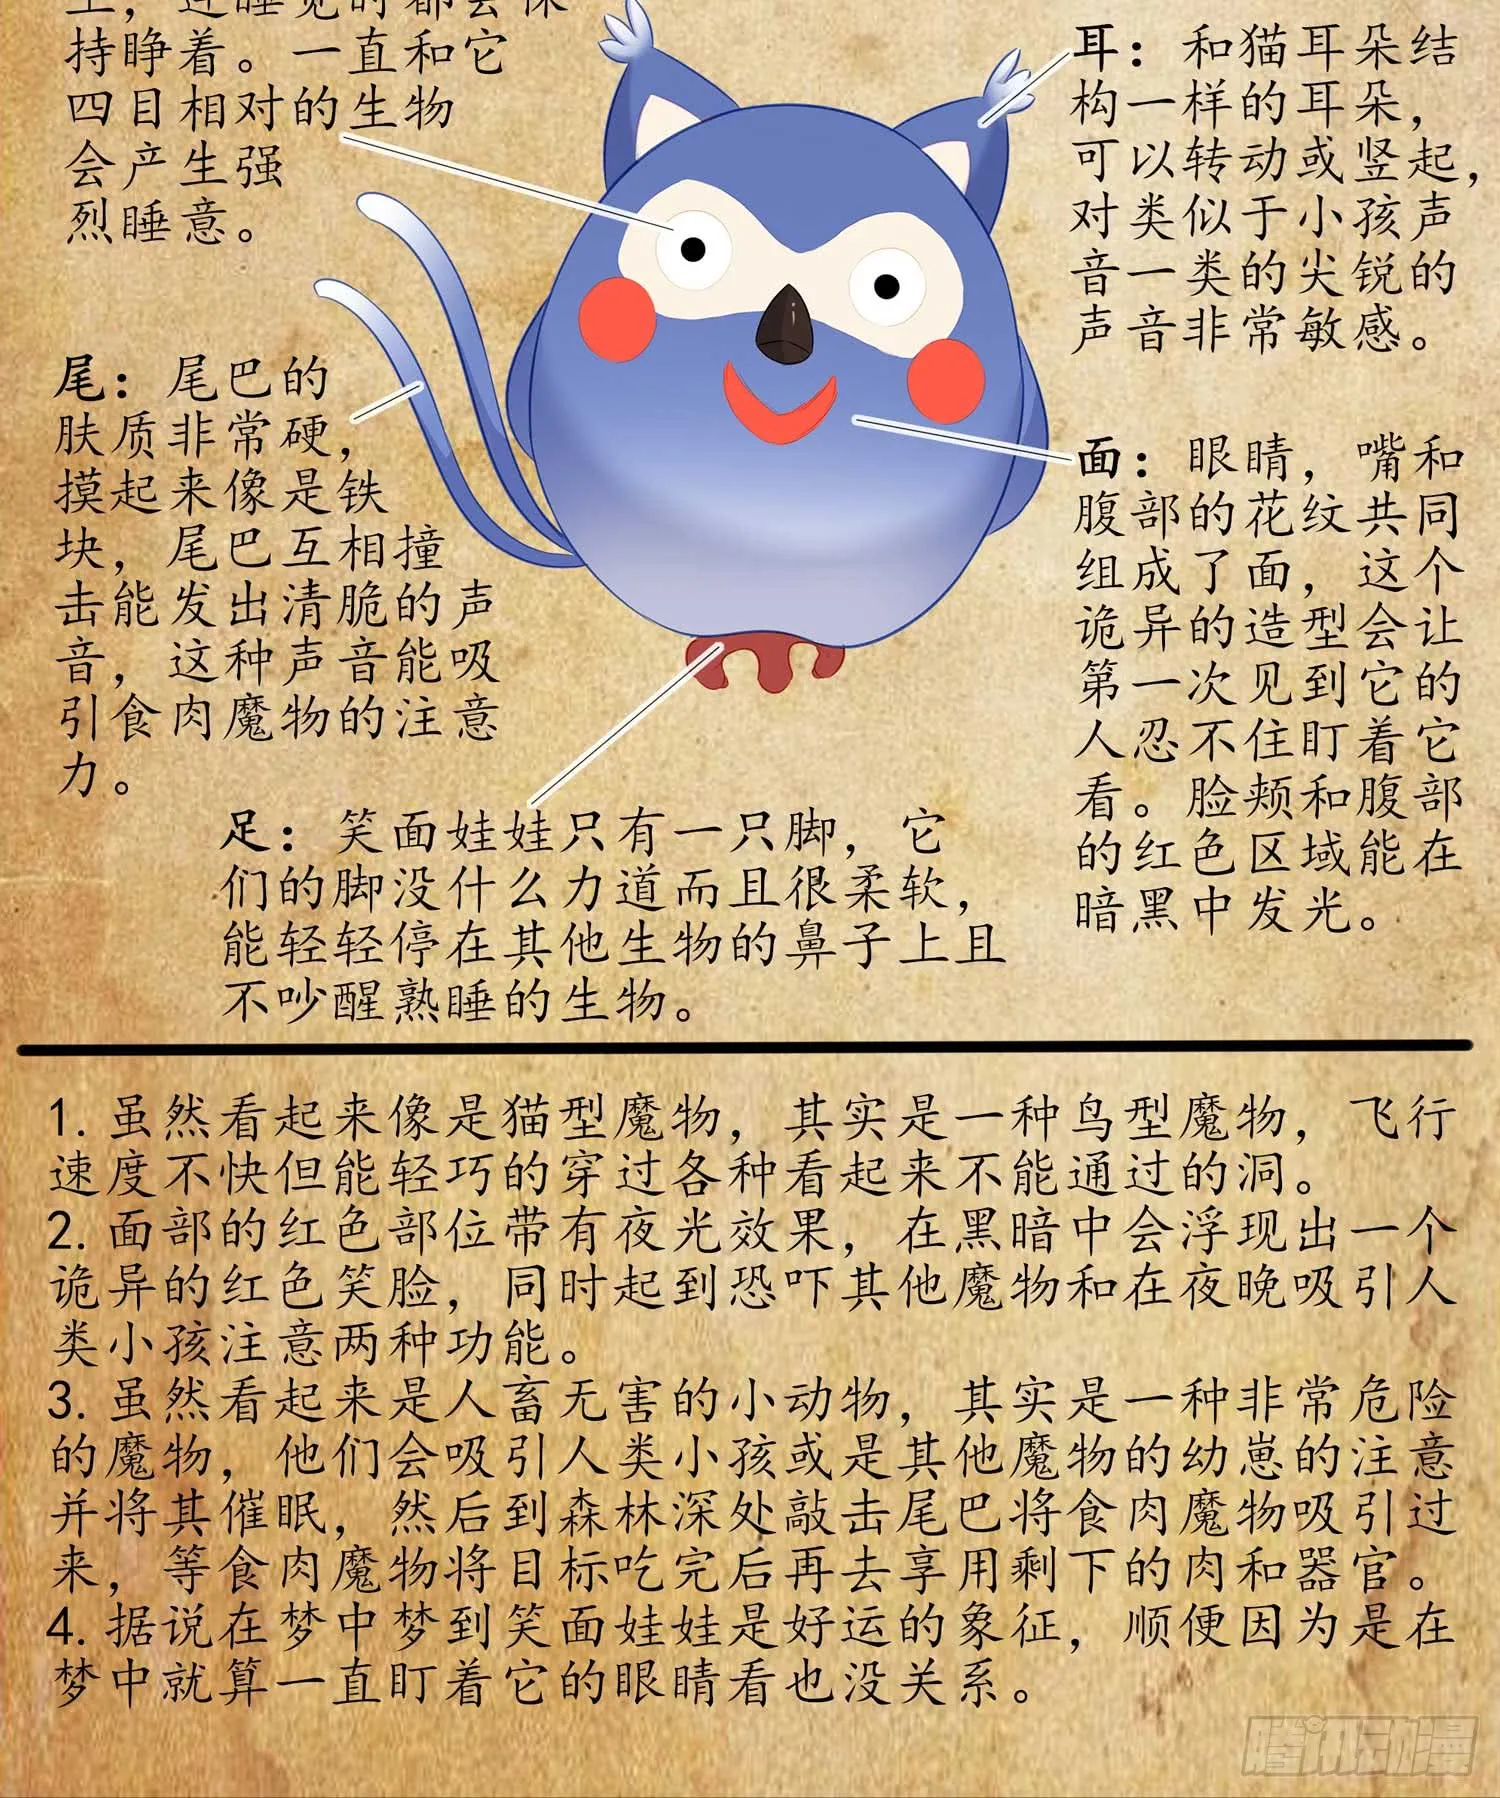 上，连睡觉时都会保
持睁着。一直和它
四目相对的生物
会产生强
烈睡意。
耳：和猫耳朵结
构一样的耳朵，
可以转动或竖起，
对类似于小孩声
音一类的尖锐的
声音非常敏感。
尾：尾巴的
肤质非常硬，
摸起来像是铁
块，尾巴互相撞
击能发出清脆的声
音，这种声音能吸
引食肉魔物的注意
力。
面：眼睛，嘴和
腹部的花纹共同
组成了面，这个
诡异的造型会让
第一次见到它的
人忍不住盯着它
看。脸颊和腹部
的红色区域能在
暗黑中发光。
足：笑面娃娃只有一只脚，它
们的脚没什么力道而且很柔软，
能轻轻停在其他生物的鼻子上且
不吵醒熟睡的生物。
1. 虽然看起来像是猫型魔物，其实是一种鸟型魔物，飞行
速度不快但能轻巧的穿过各种看起来不能通过的洞。
2. 面部的红色部位带有夜光效果，在黑暗中会浮现出一个
诡异的红色笑脸，同时起到恐吓其他魔物和在夜晚吸引人
类小孩注意两种功能。
3. 虽然看起来是人畜无害的小动物，其实是一种非常危险
的魔物，他们会吸引人类小孩或是其他魔物的幼崽的注意
并将其催眠，然后到森林深处敲击尾巴将食肉魔物吸引过
来，等食肉魔物将目标吃完后再去享用剩下的肉和器官。
4. 据说在梦中梦到笑面娃娃是好运的象征，顺便因为是在
梦中就算一直盯着它的眼睛看也没关系。
腾讯动漫